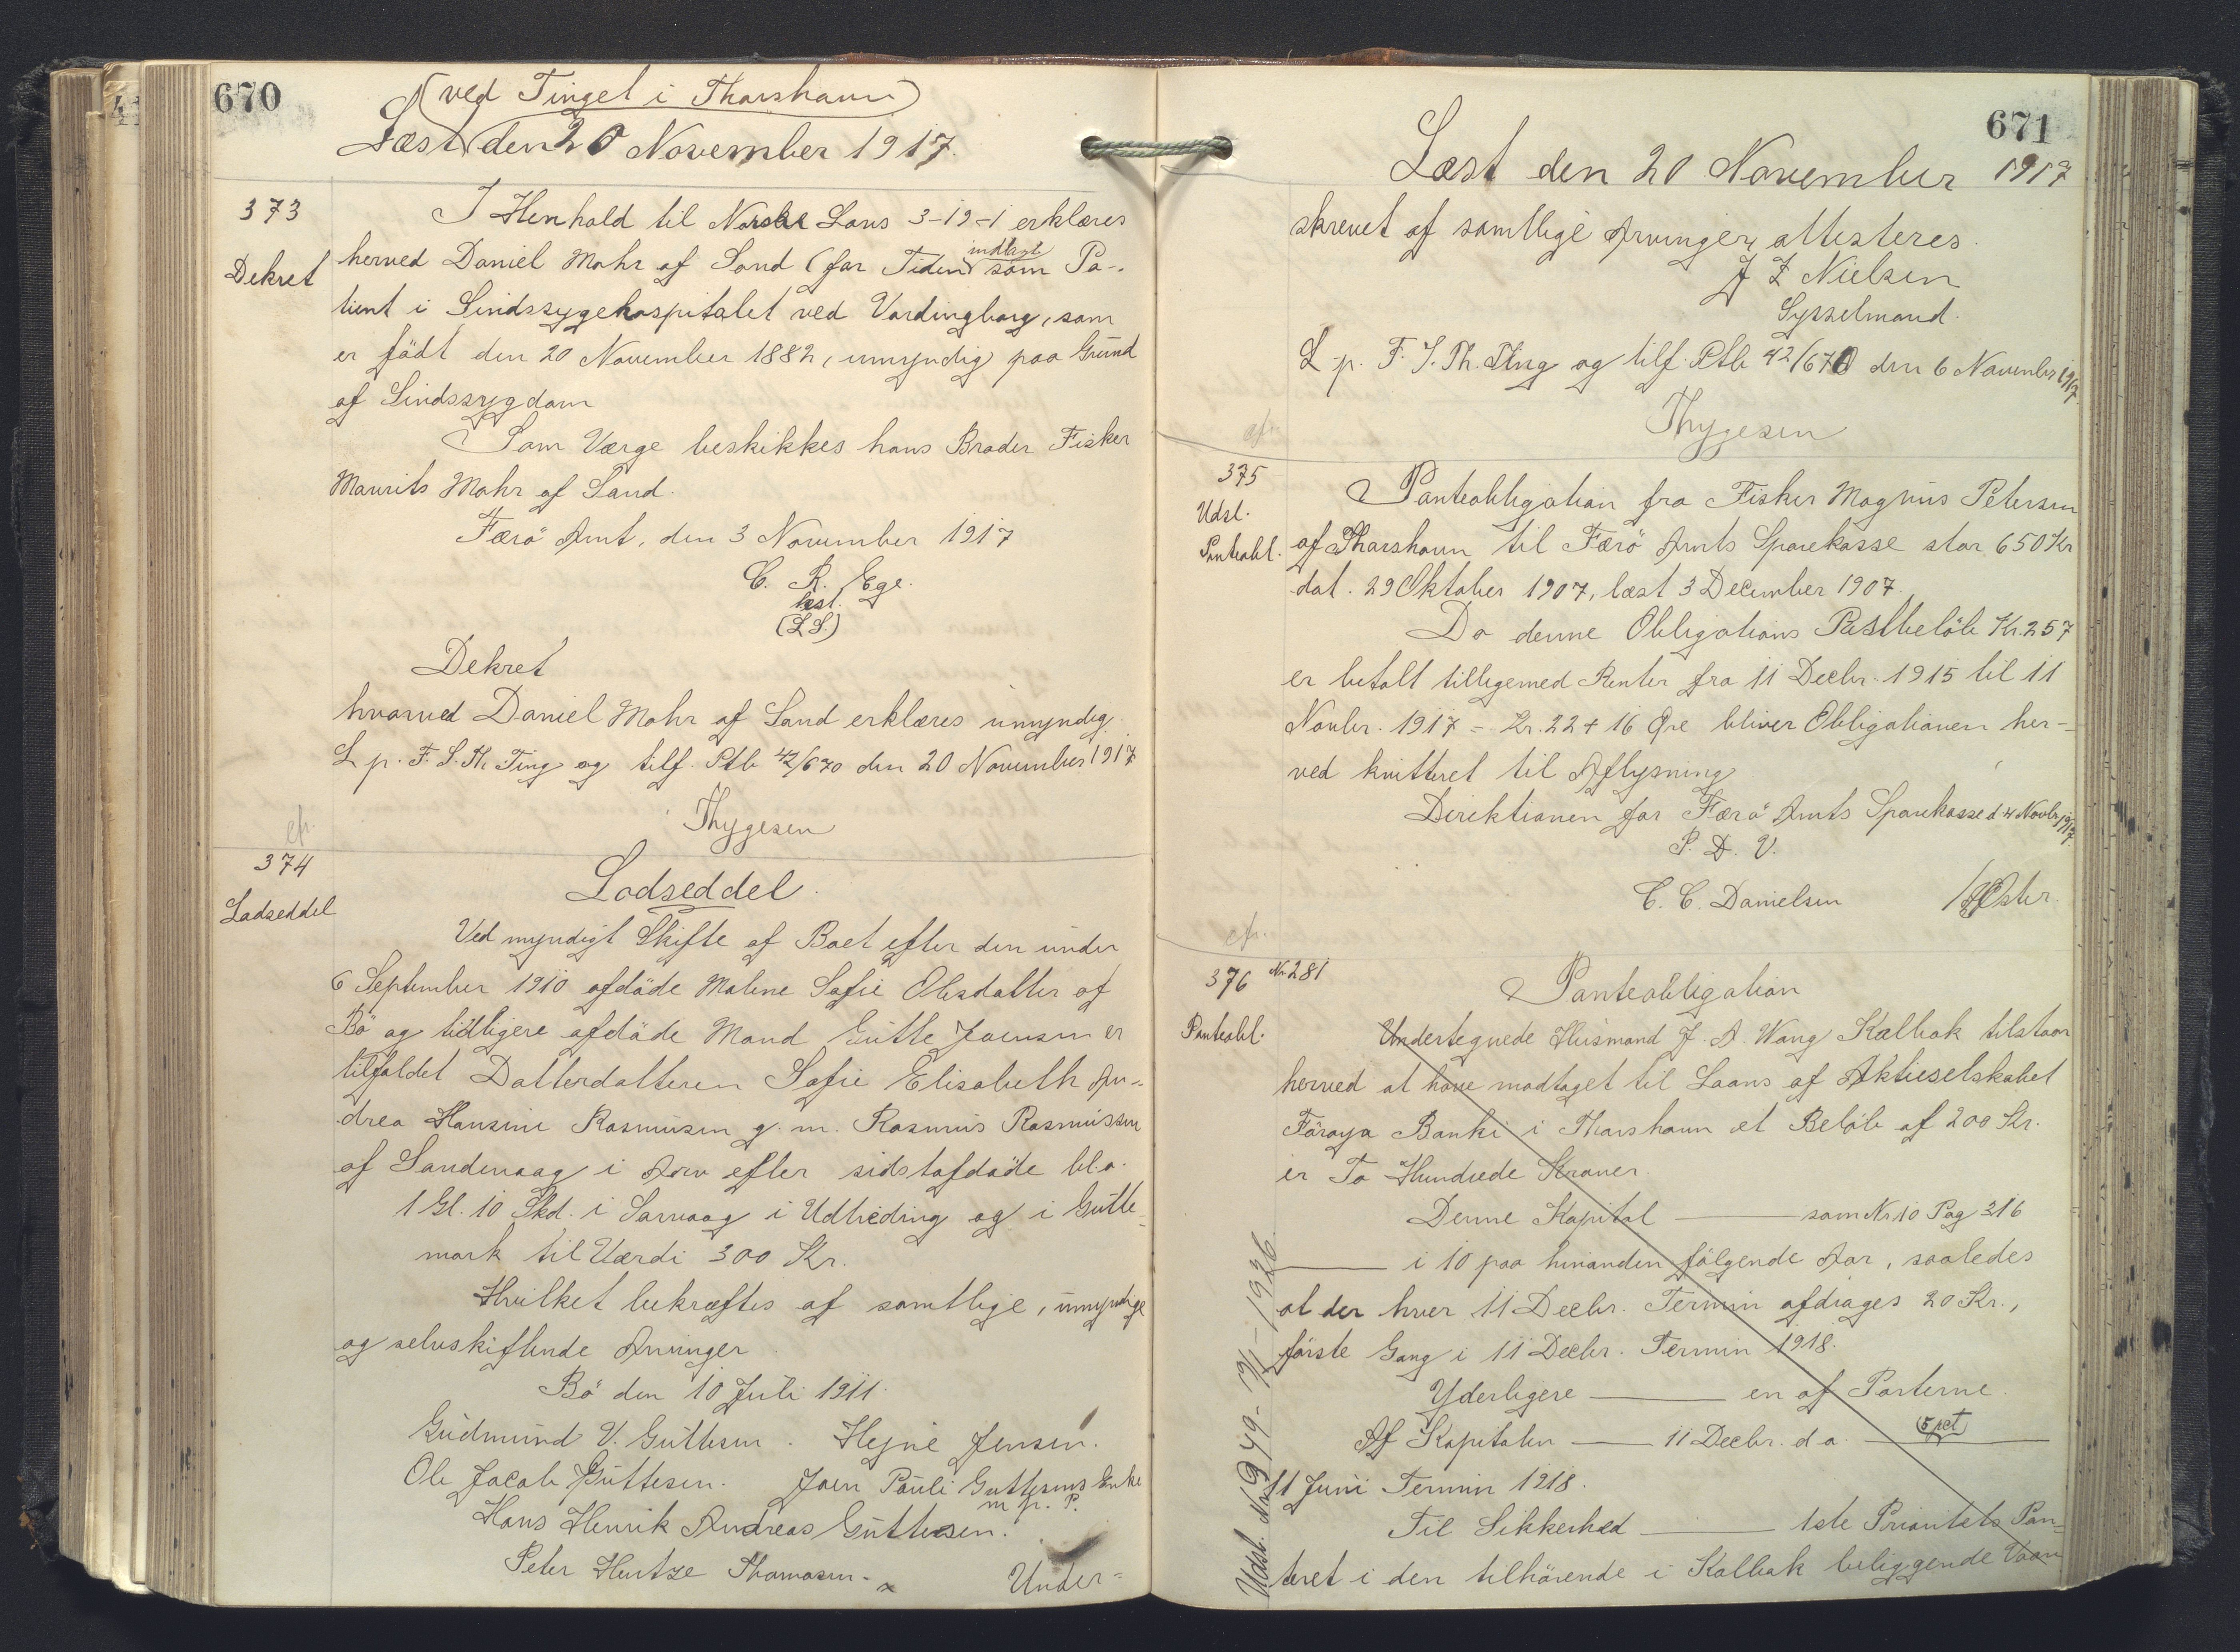 670
(ved Tinget i Thorshavn)
Læst den 20 November 1917.
373
Dekret
I Henhold til Norske Lovs 3-19-1 erklæres
herved Daniel Mohr af Sand (for Tiden indlagt som Pa-
tient i Sindssygehospitalet ved Vordingborg, som
er född den 20 November 1882, umyndig paa Grund
af Sindssygdom
Som Værge beskikkes hans Broder Fisker
Maurits Mohr af Sand.
Færö Amt, den 3 November 1917
C. R. Ege.
kst.
(L.S.)
Dekret
hvorved Daniel Mohr af Sand erklæres umyndig.
L p. F. S. Th. Ting og tilf. Ptb 42/670 den 20 November 1917
Thygesen
cfr.
374
Lodseddel
Lodseddel.
Ved myndigt Skifte af Boet efter den under
6 September 1910 afdöde Malene Sofie Olesdatter af
Bö og tidligere afdöde Mand Gutte Joensen er
tilfaldet Datterdatteren Sofie Elisabeth An-
drea Hansine Rasmusen g. m. Rasmus Rasmussen
af Sandevaag i Arv efter sidstafdöde bl.a.
1 Gl. 10 Skd. i Sarvaag i Udtheding og i Gutte-
mark til Værdi 300 Kr.
Hvilket bekræftes af samtlige, umyndige
og selvskiftende Arvinger
Bö den 10 Juli 1911.
Gudmund V. Guttesen. Hejne Jensen.
Ole Jacob Guttesen. Joen Pauli Guttesens Enke
m. p. P.
Hans Henrik Andreas Guttesen.
Peter Hentze Thomasen.
Under=
671
Læst den 20 November 1917
skrevet af samtlige Arvinger, attesteres.
J Z Nielsen
Sysselmand.
L p. F. S. Th. Ting og tilf. Ptb 42/670 den 6 November 1917.
Thygesen
cfr.
375
Udsl.
Panteobl.
Panteobligation fra Fisker Magnus Petersen
af Thorshavn til Færö Amts Sparekasse stor 650 Kr
dat. 29 Oktober 1907, læst 3 December 1907.
Da denne Obligations Restbelöb Kr. 257
er betalt tilligemed Renter fra 11 Decbr. 1915 til 11
Novbr. 1917 = Kr. 22 + 16 Øre bliver Obligationen her-
ved kvitteret til Aflysning
Direktionen for Færö Amts Sparekasse d 4 Novbr 1917
P. D. V.
C. C. Danielsen / Öster.
cfr.
376 Nr 281
Panteobl.
Panteobligation
Undertegnede Husmand J. A. Wang Kalbak tilstaar
herved at have modtaget til Laans af Aktieselskabet
Föroya Banki i Thorshavn et Belöb af 200 Kr.
er To Hundrede Kroner.
Denne Kapital ——— som Nr 10 Pag 316
——— i 10 paa hinanden fölgende Aar, saaledes
at der hver 11 Decbr. Termin afdrages 20 Kr.,
förste Gang i 11 Decbr. Termin 1918.
Yderligere ——— en af Parterne.
Af Kapitalen ——— 11 Decbr. d. a. (5 pct) ———
11 Juni Termin 1918.
Til Sikkerhed ——— 1ste Prioritets Pan=
teret i den tilhörende i Kalbak beliggende Vaan
Udsl. Nr 949-